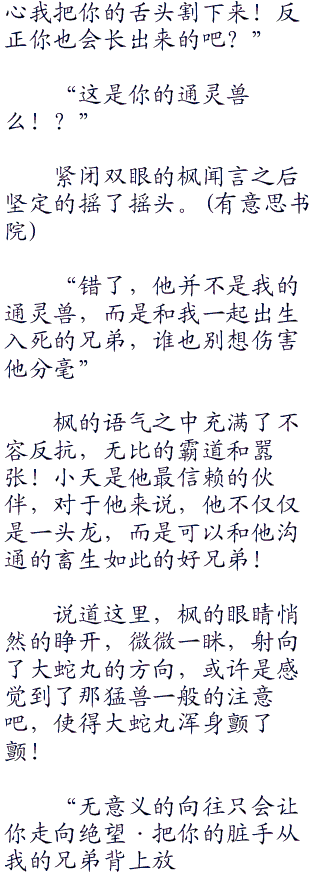 心我把你的舌头割下来！反
正你也会长出来的吧？”
“这是你的通灵兽
么！？”
紧闭双眼的枫闻言之后
坚定的摇了摇头。(有意思书
院)
“错了，他并不是我的
通灵兽，而是和我一起出生
入死的兄弟，谁也别想伤害
他分毫”
枫的语气之中充满了不
容反抗，无比的霸道和嚣
张！小天是他最信赖的伙
伴，对于他来说，他不仅仅
是一头龙，而是可以和他沟
通的畜生如此的好兄弟！
说道这里，枫的眼睛悄
然的睁开，微微一眯，射向
了大蛇丸的方向，或许是感
觉到了那猛兽一般的注意
吧，使得大蛇丸浑身颤了
颤！
“无意义的向往只会让
你走向绝望·把你的脏手从
我的兄弟背上放